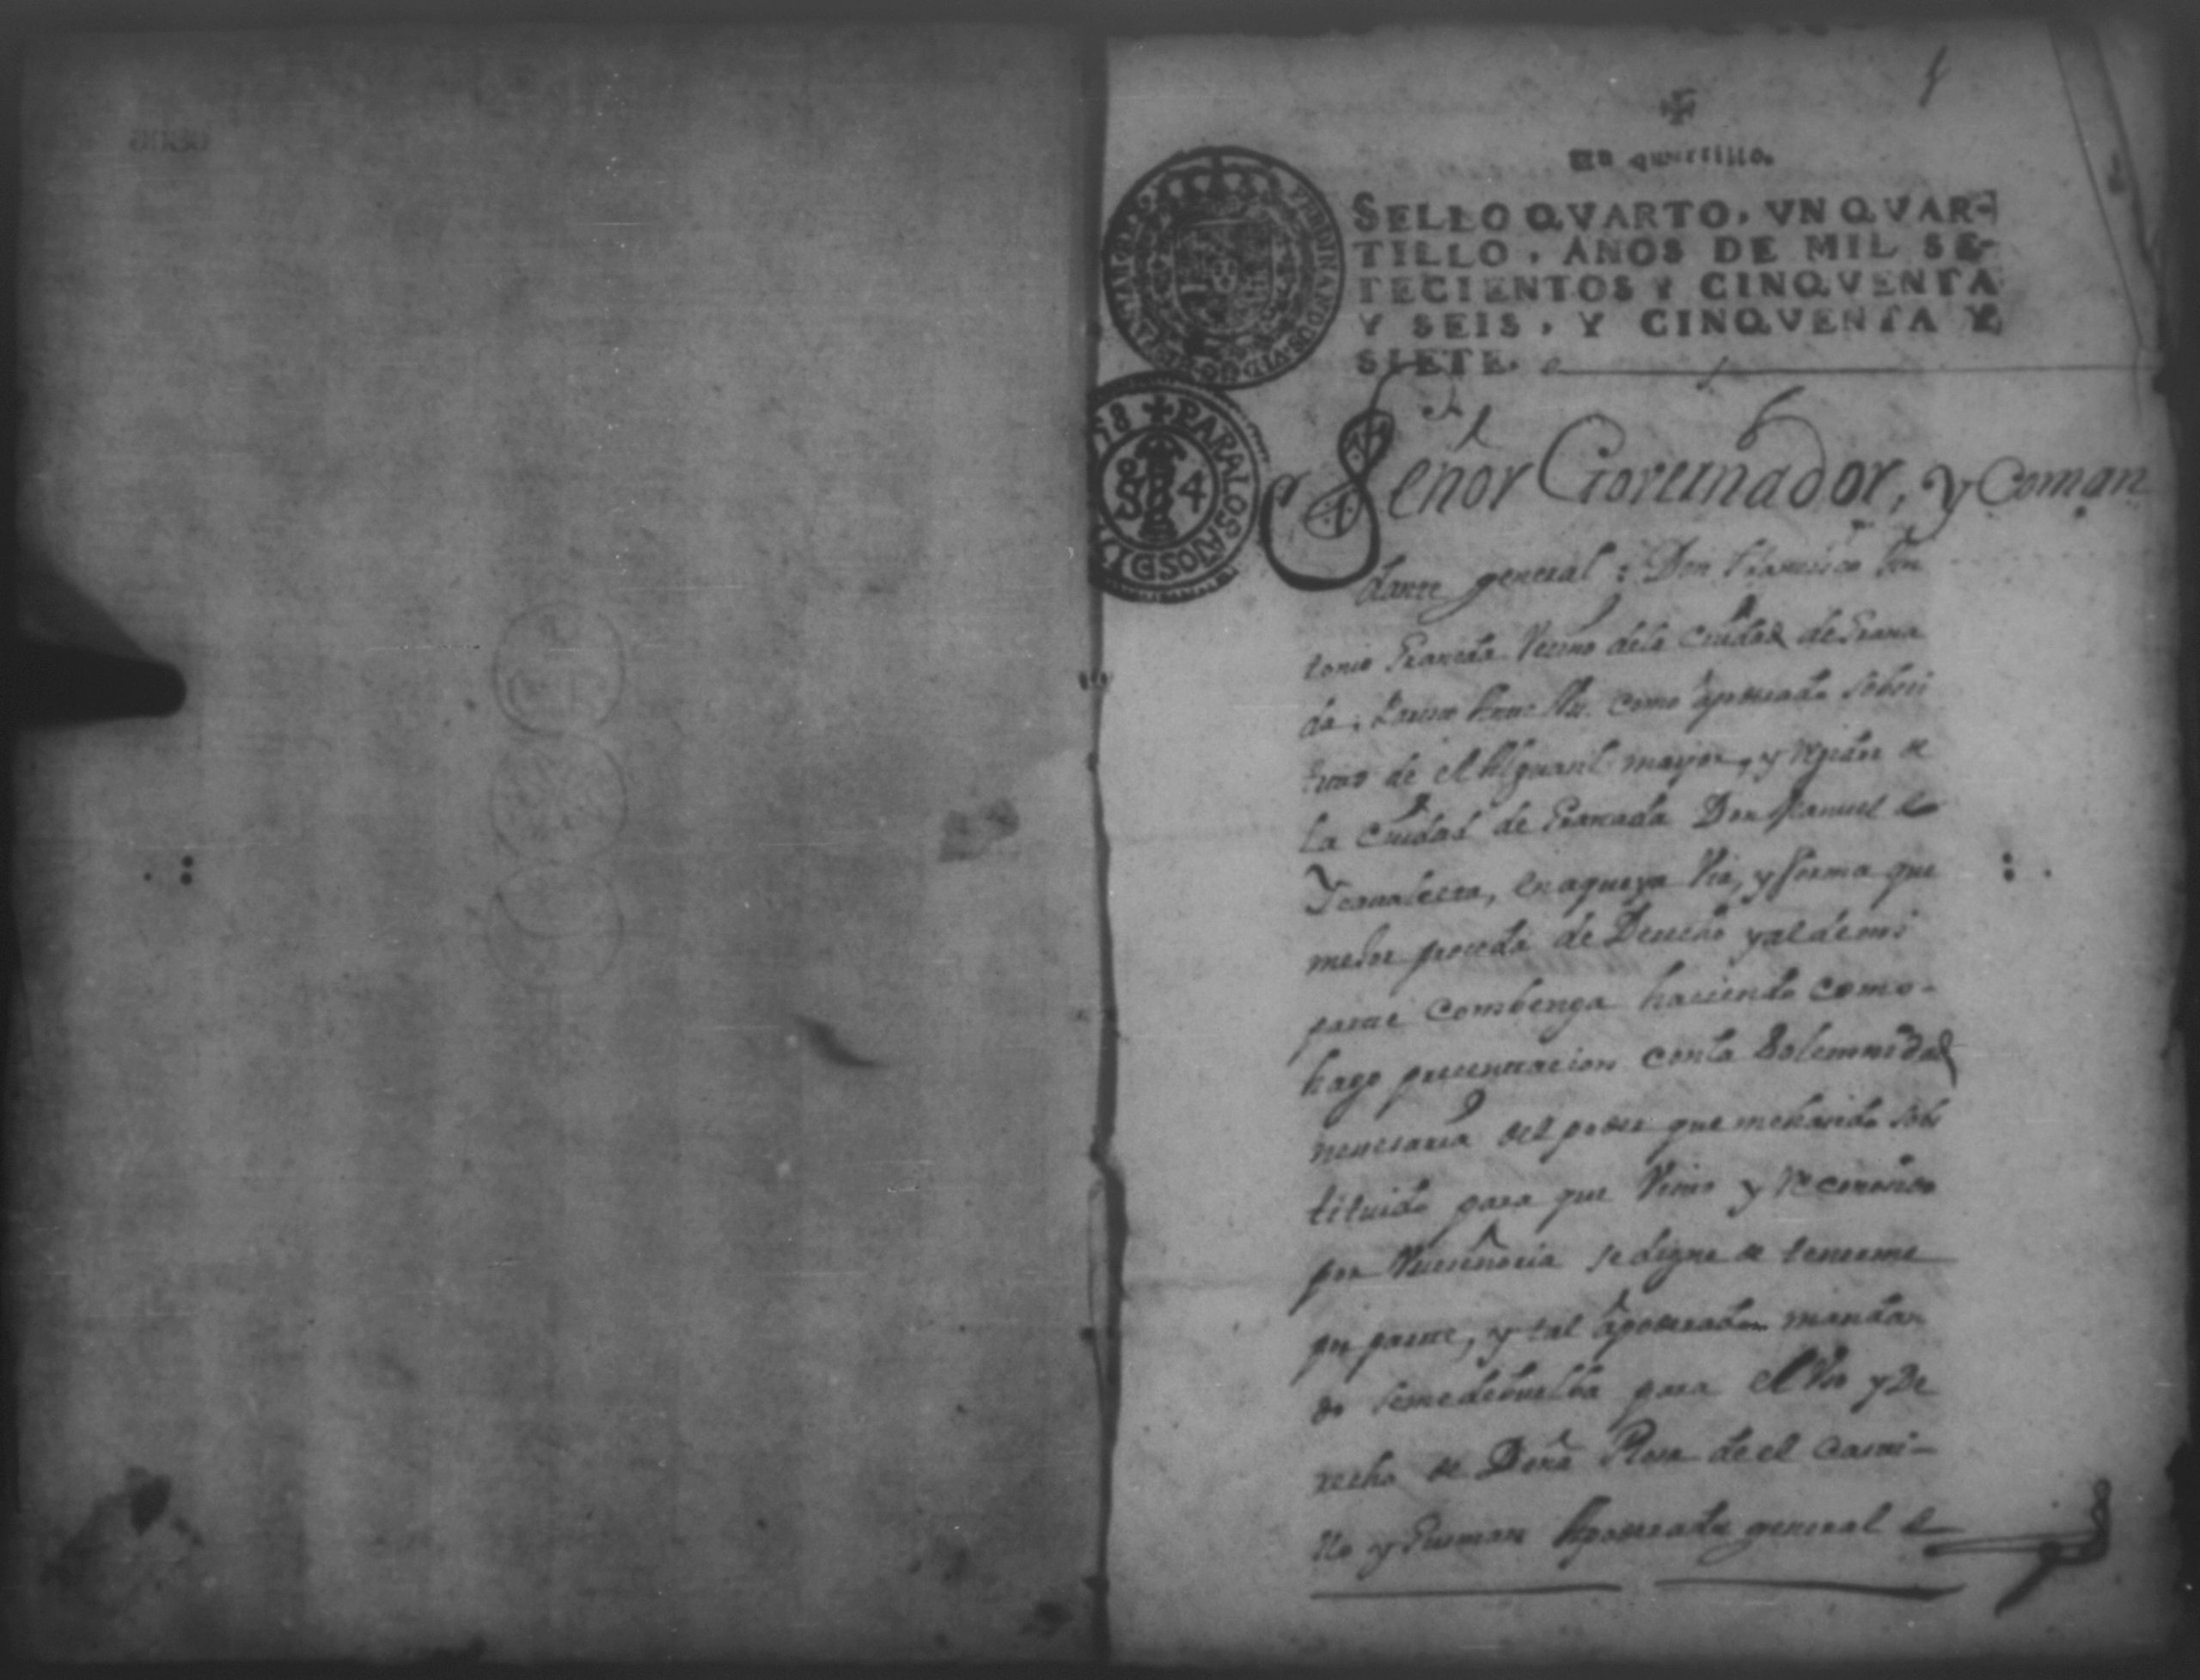 Un quartillo.
SELLO QVARTO, VN QVAR-
TILLO, AÑOS DE MIL SE-
TECIENTOS Y CINQVENTA
Y SEIS, Y CINQVENTA Y
SIETE.
PARA LOS AÑOS D
58
4
Señor Governador, y Coman
dante general: Don Francisco An
tonio Granada Vecino dela Ciudad de Grana
da, como apoderado sobsti
tuto de el Alguacil mayor, y regidor de
la Ciudad de Granada Don Manuel de
en aqueya via, y forma que
mejor proceda de Derecho y al de mi
parte combenga haciendo como-
hago precentacion con la Solemnidad
necesaria del poder que mehasido sobs
tituido para que Visto y reconosido
por Vuceñoria se digne de tenerme
por parte, y tal apoderado mandan
do semedebuelba para el Vso y De
recho de Doña Rosa de el Casti-
llo y Gusman Apoderada general de